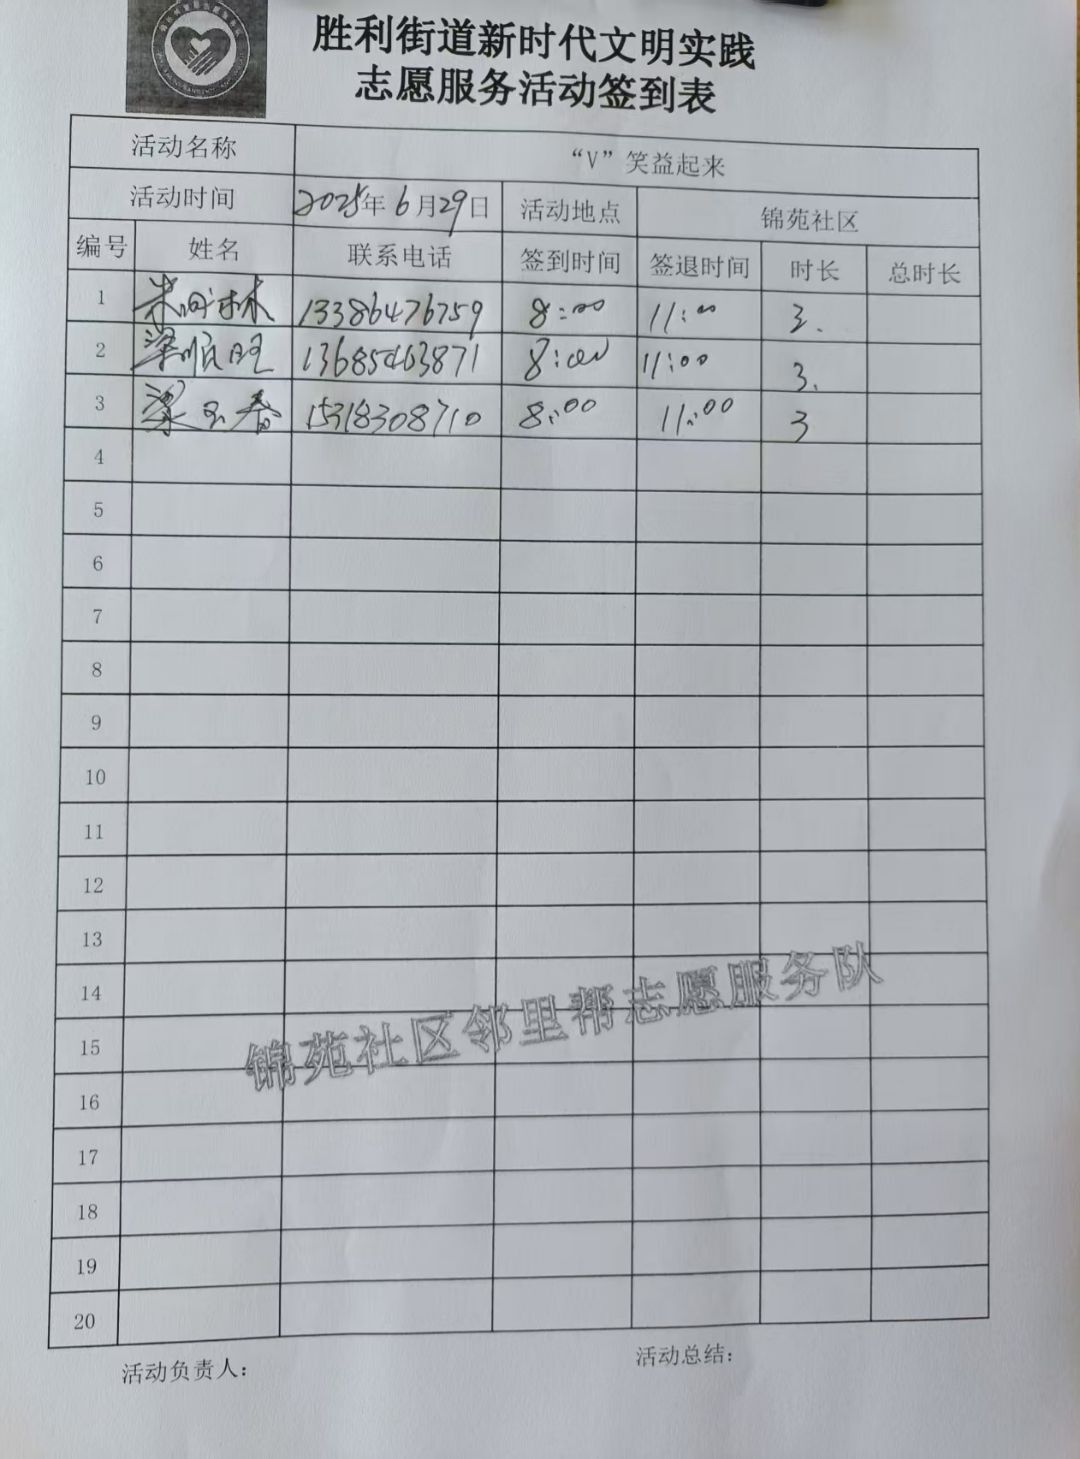 胜利街道新时代文明实践
志愿服务活动签到表
活动名称 “V”笑益起来
活动时间 2025年6月29日 活动地点 锦苑社区
编号 姓名 联系电话 签到时间 签退时间 时长 总时长
1 林 13386476759 8:00 11:00 3.
2 梁顺旺 13685463871 8:00 11:00 3.
3 梁玉春 15318308710 8:00 11:00 3
4
5
6
7
8
9
10
11
12
13
14
15
锦苑社区邻里帮志愿服务队
16
17
18
19
20
活动负责人: 活动总结: